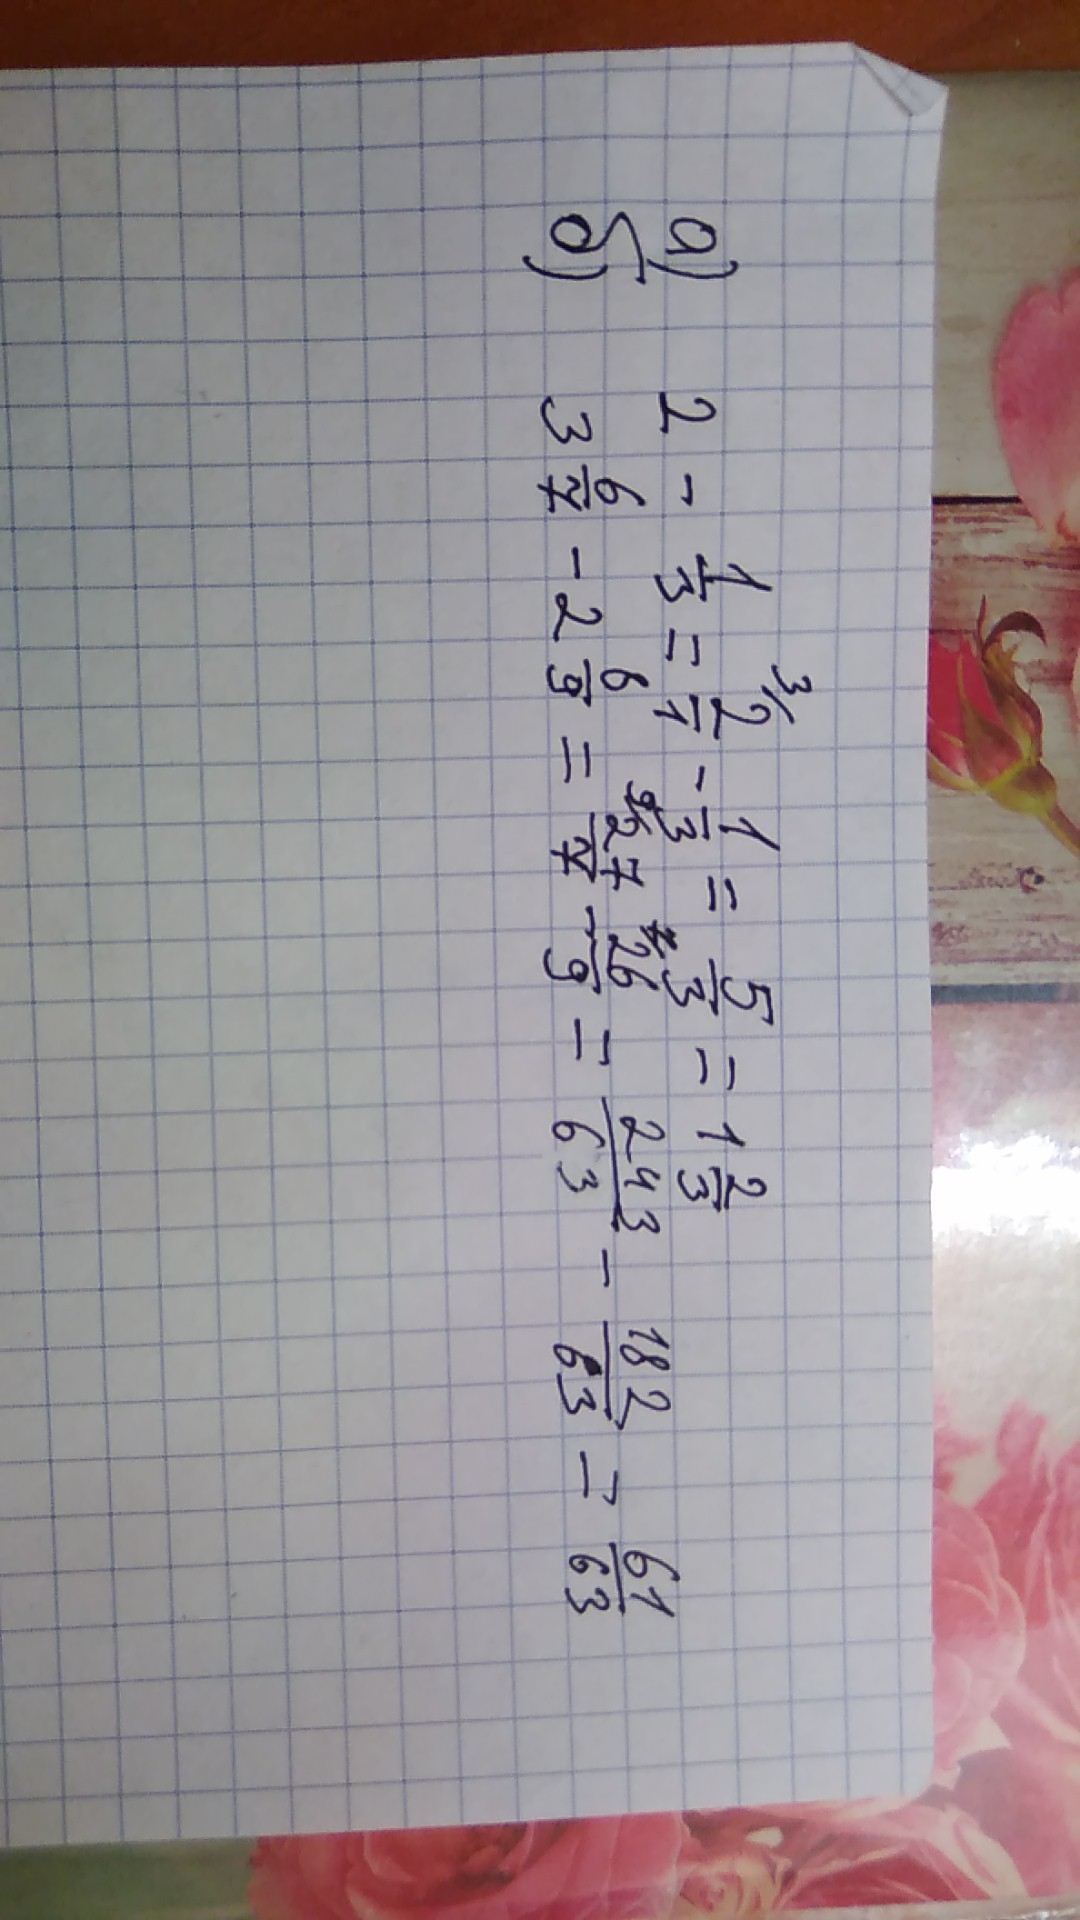 а) 2 - 1/3 = ³⁄ 2/1 - 1/3 = 5/3 = 1 2/3
б) 3 6/7 - 2 6/9 = ⁹⁄ 27/7 - ⁷⁄ 26/9 = 243/63 - 182/63 = 61/63